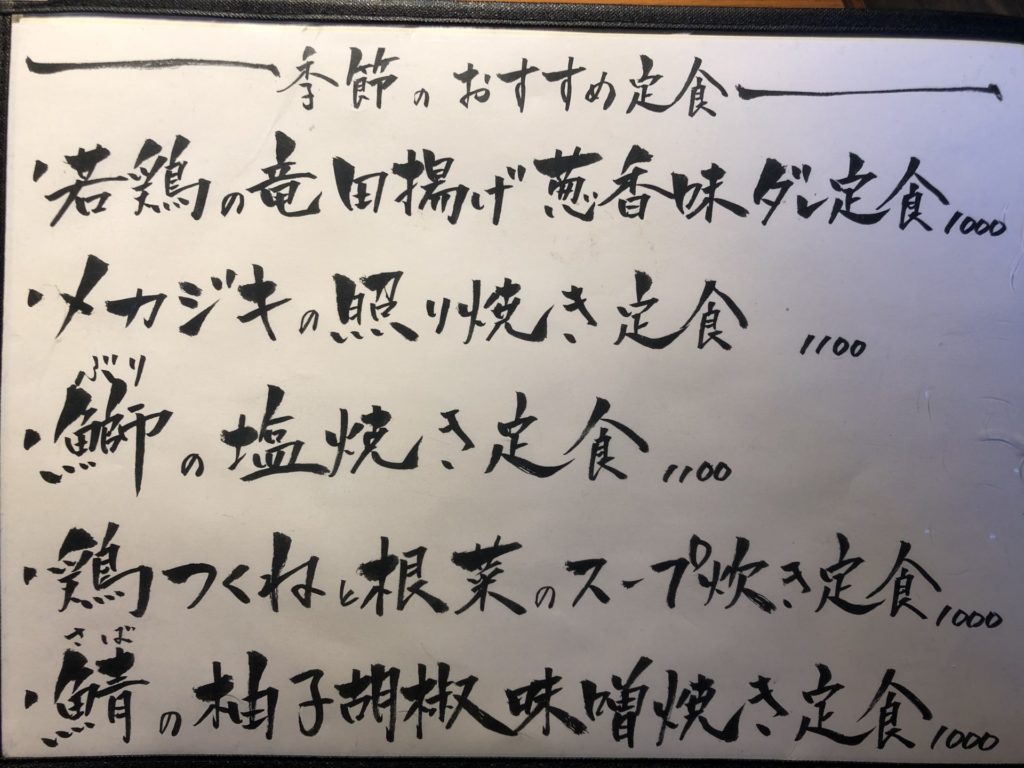 季節のおすすめ定食
・若鶏の竜田揚げ葱香味ダレ定食 1000
・メカジキの照り焼き定食 1100
ぶり
・鰤の塩焼き定食 1100
・鶏つくねと根菜のスープ炊き定食 1000
さば
・鯖の柚子胡椒味噌焼き定食 1000